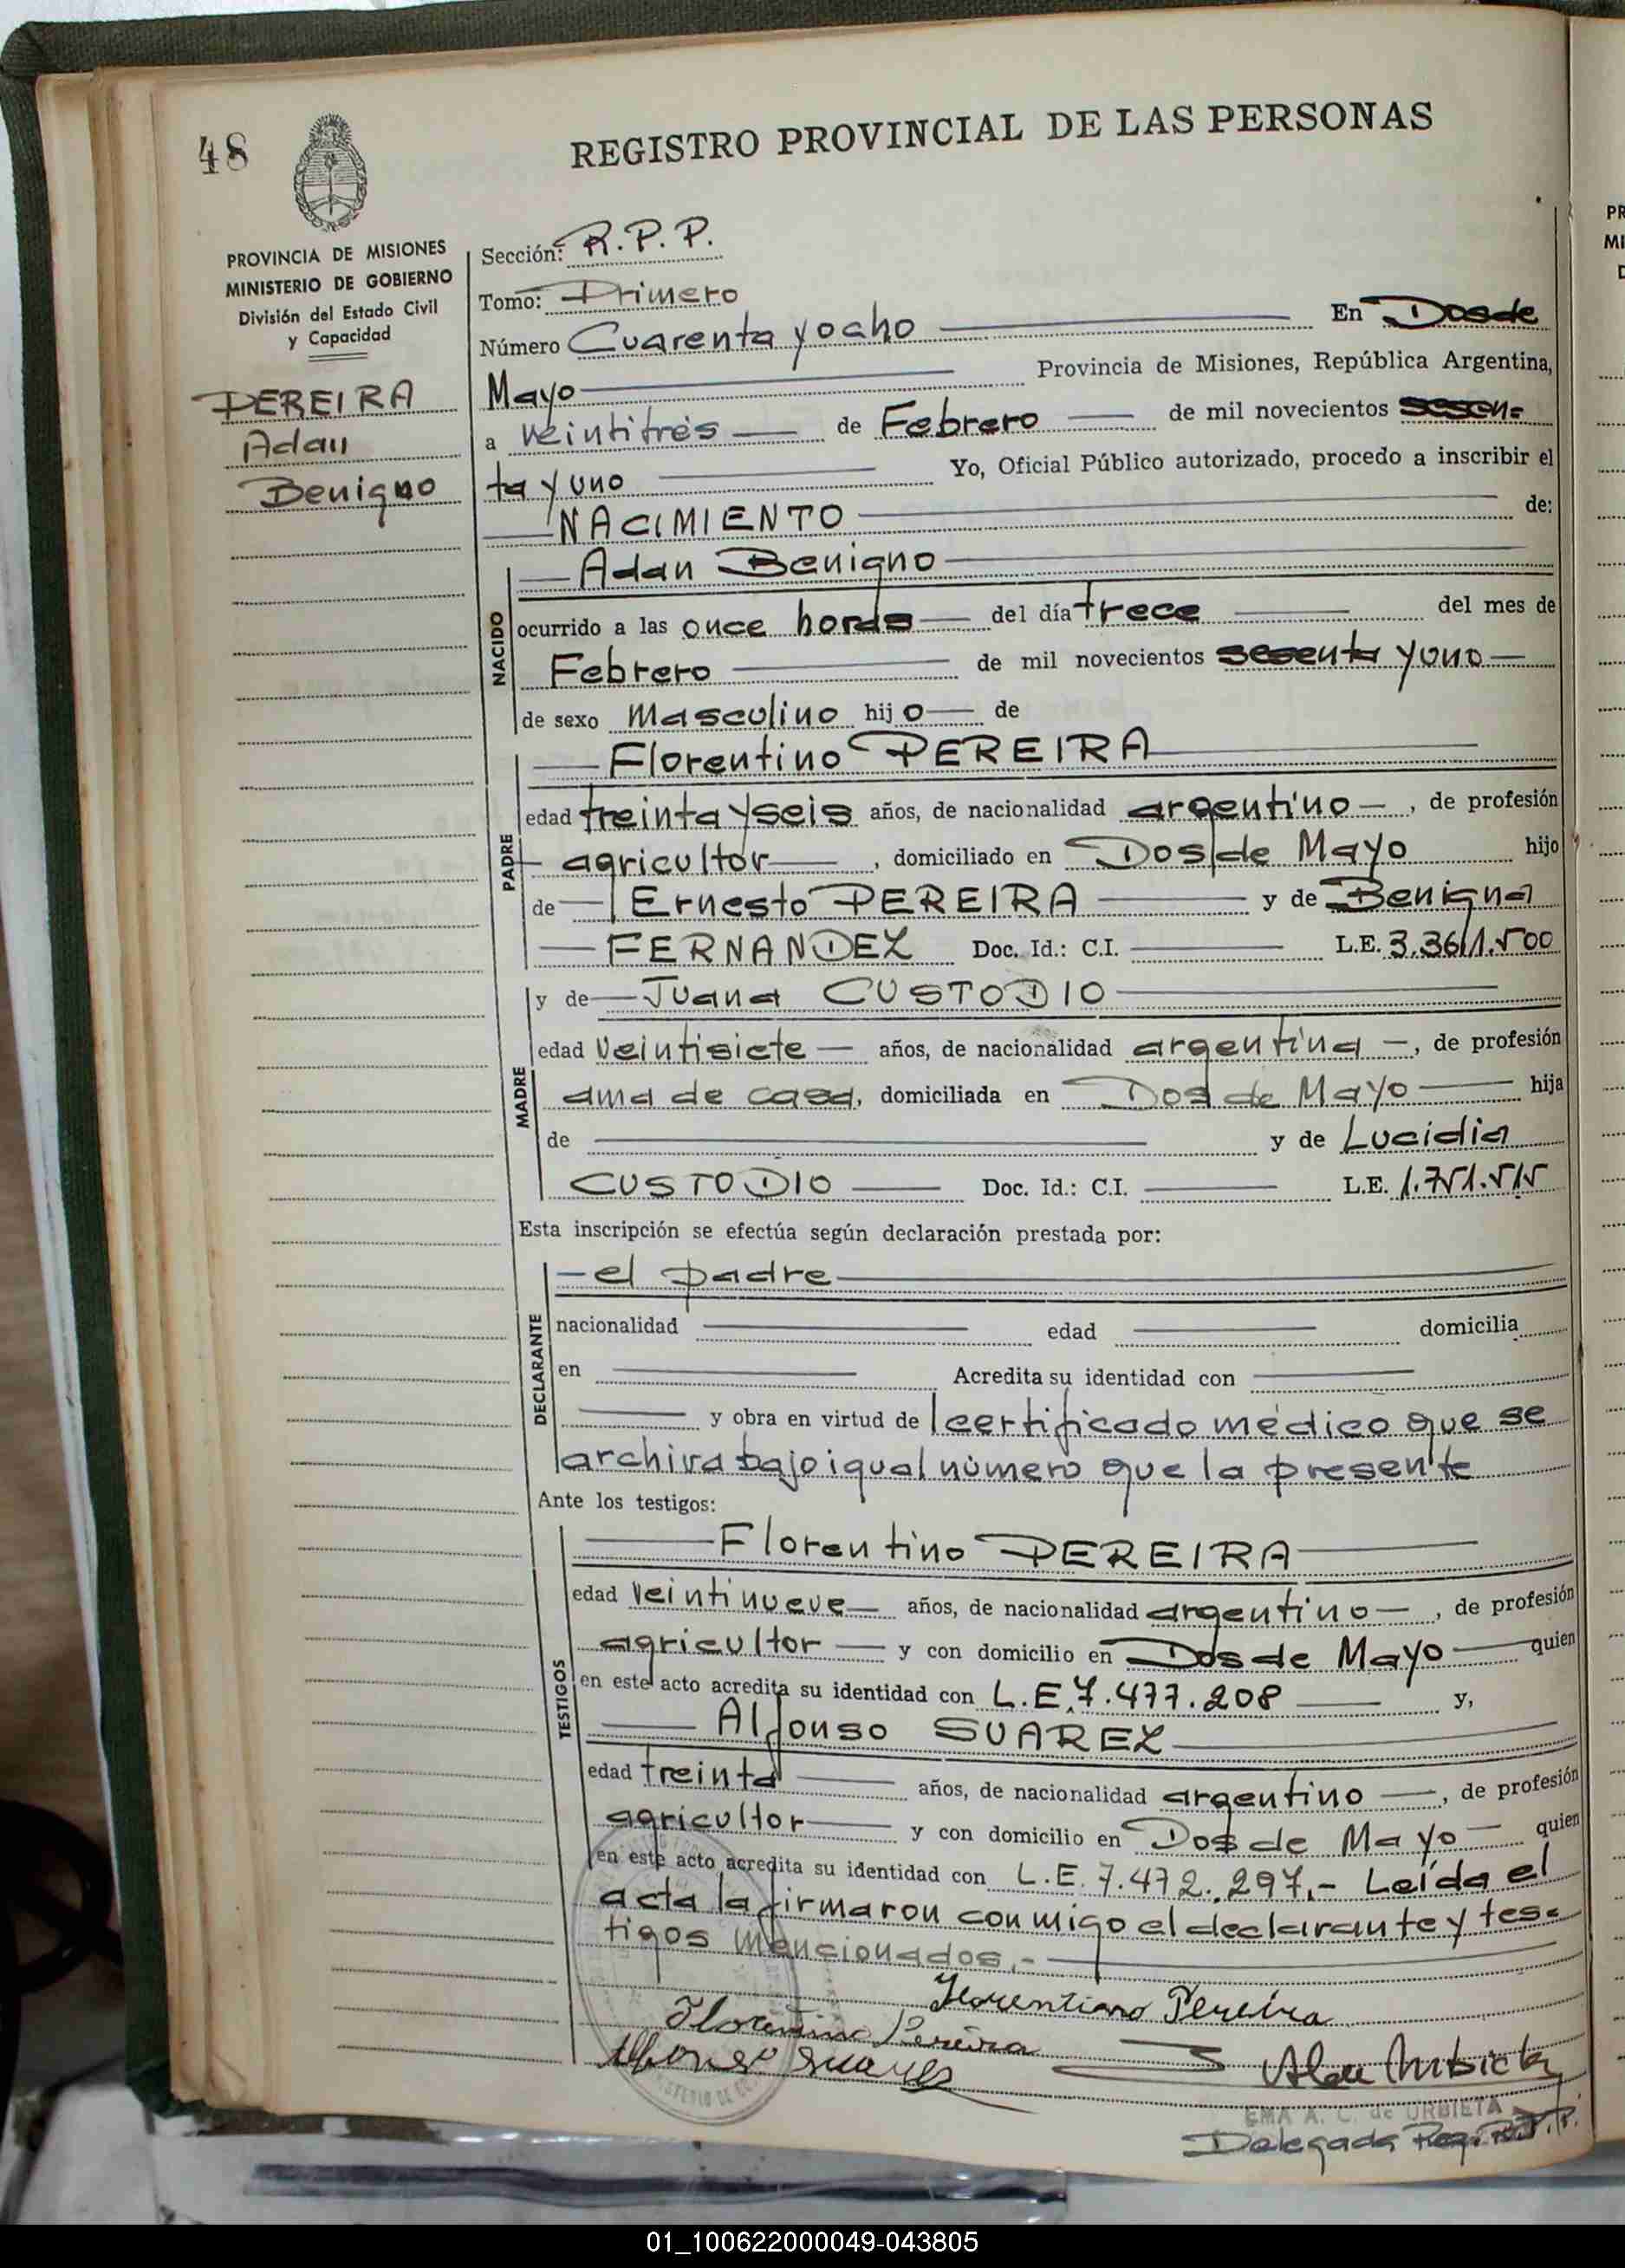 48
REGISTRO PROVINCIAL DE LAS PERSONAS
PROVINCIA DE MISIONES
MINISTERIO DE GOBIERNO
División del Estado Civil
y Capacidad
PEREIRA
Adan
Benigno
Sección: R.P.P.
Tomo: Primero
Número Cuarenta y ocho En Dos de
Mayo Provincia de Misiones, República Argentina,
a veintitrés de Febrero de mil novecientos sesen=
ta y uno Yo, Oficial Público autorizado, procedo a inscribir el
NACIMIENTO de:
NACIDO
Adan Benigno
ocurrido a las once horas del día trece del mes de
Febrero de mil novecientos sesenta y uno
de sexo masculino hijo de
PADRE
Florentino PEREIRA
edad treinta y seis años, de nacionalidad argentino, de profesión
agricultor, domiciliado en Dos de Mayo hijo
de Ernesto PEREIRA y de Benigna
FERNANDEZ Doc. Id.: C.I. L.E. 3.361.500
MADRE
y de Juana CUSTODIO
edad veintisiete años, de nacionalidad argentina, de profesión
ama de casa, domiciliada en Dos de Mayo hija
de y de Lucidia
CUSTODIO Doc. Id.: C.I. L.E. 1.751.515
Esta inscripción se efectúa según declaración prestada por:
DECLARANTE
el padre
nacionalidad edad domicilia
en Acredita su identidad con
y obra en virtud de certificado médico que se
archiva bajo igual número que la presente
Ante los testigos:
TESTIGOS
Florentino PEREIRA
edad veintinueve años, de nacionalidad argentino, de profesión
agricultor y con domicilio en Dos de Mayo quien
en este acto acredita su identidad con L.E. 7.477.208 y,
Alfonso SUAREZ
edad treinta años, de nacionalidad argentino, de profesión
agricultor y con domicilio en Dos de Mayo quien
en este acto acredita su identidad con L.E. 7.472.297.- Leída el
acta la firmaron conmigo el declarante y tes=
tigos mencionados.-
Florentiano Pereira
Florentino Pereira
Alfonso Suares
EMA A. C. de URBIETA
Delegada Reg. P.P.
01_100622000049-043805